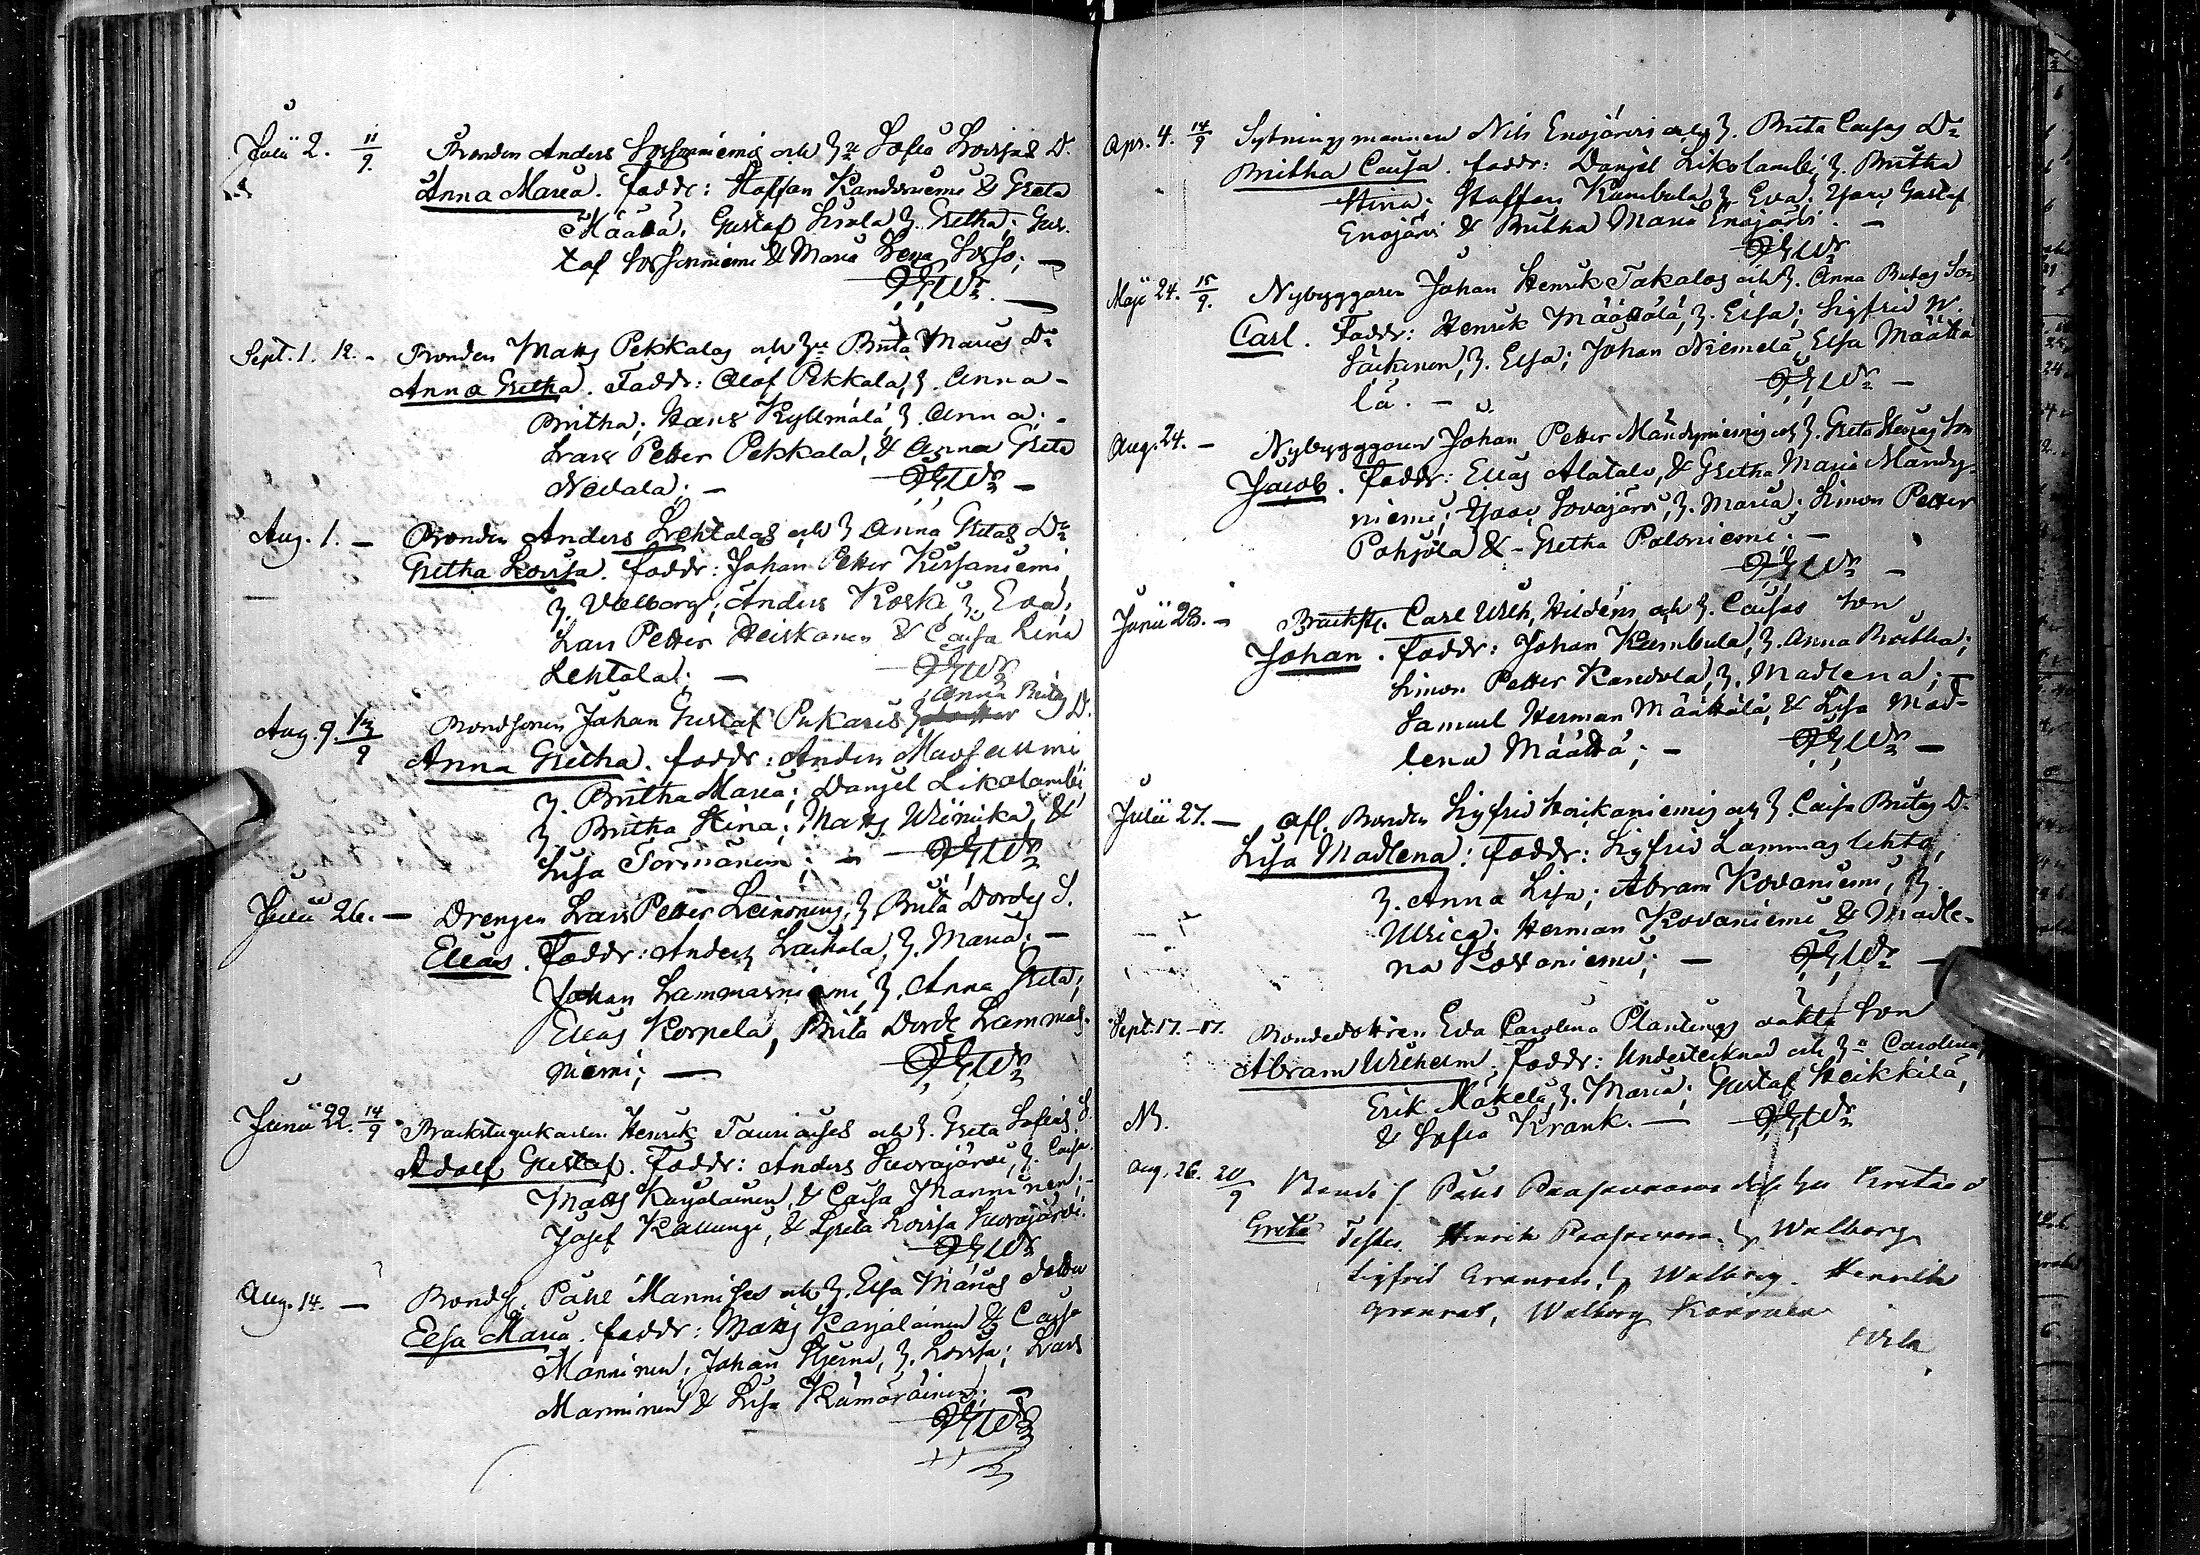 Julii 2. 11/9. Bonden Anders Sorsaniemis och H:u Sofia Lovisas D.
Anna Maria. Faddr: Staffan Kandoniemi & Greta
Määtä; Gustaf Sirola, H. Gretha; Gus-
taf Sorsaniemi & Maria Lena Sorsa; —
Sept. 1. 12. - Bonden Matts Pekkalas och H:u Brita Marias Dr
Anna Gretha. Faddr: Olof Pekkala, H. Anna -
Britha; Hans Kyllmälä, H. Anna; -
Lars Petter Pekkala, & Anna Greta
Nevala; —
Aug. 1. — Bonden Anders Lehtalas och H Anna Gretas Dr
Gretha Lovisa. Faddr: Johan Petter Kursaniemi
H. Valborg; Anders Koski, H. Eva;
Lars Petter Heiskanen & Caisa Lina
Lehtala; —
Anna Britas D.
Aug. 9. 13/9 Bondsonen Johan Gustaf Pukaris H
Anna Gretha. Faddr: Anders
H. Britha Maria; Danjel Likolambi,
H. Britha Stina; Matts &
Lisa Törmänen; —
Julii 26. — Drengen Lars Petter Leinonens, H. Brita Dordes S.
Elias. Faddr: Anders Laihala, H. Maria; —
Johan Lammasniemi, H. Anna Greta;
Elias Korpela, Brita Dorde Lammas-
niemi; —
Junii 22. 14/9 Backstugukarlen Henrik Tauriaises och H. Greta Sofias S.
Adolf Gustaf. Faddr: Anders Suvajärvi, H. Caisa
Matts Karjalainen, & Caisa Manninen; -
Josef Kallungi, & Greta Lovisa Suvajärvi.
Aug. 14. — Bonds. Påhl Mannises och H. Elsa Marias dotter
Elsa Maria. Faddr: Matts Karjalainen & Caisa
Manninen; Johan Stjerna, H. Lovisa; Lars
Manninen & Lisa Kämäräinen; —
Apr. 4. 14/9 Sytningsmannen Nils Enojärvis och H. Brita Caisas Dr
Britha Caisa. Faddr: Danjel Likolambi, H. Britha
Stina; Staffan Kumbula, H. Eva; Isaac Gustaf
Enojärvi & Britha Maria Enojärvi. —
Maji 24. 15/9. Nybyggaren Johan Henrik Takalos och H. Anna Britas Son
Carl. Faddr: Henrik Määttälä, H. Elsa; Sigfrid W.
Säkinen, H. Elsa; Johan Niemelä, Elsa Määttä-
lä. —
Aug. 24. — Nybyggaren Johan Petter Mändyniemis och H. Greta Stinas Son
Jacob. Faddr: Elias Alatalo, & Gretha Maria Mändy-
niemi; Isaac Sovajärvi, H. Maria; Simon Petter
Pohjola & Gretha Paloniemi. —
Junii 28. — Backst. Carl Wilh. Hildéns och H. Caisas Son
Johan. Faddr: Johan Kumbula, H. Anna Britha;
Simon Petter Kandola, H. Madlena; —
Samuel Herman Määttälä, & Lisa Mad-
lena Määttä; —
Julii 27. — Afl. Bonden Sigfrid Koikaniemis och H. Caisa Britas D.
Lisa Madlena: Faddr: Sigfrid Lammaslehto,
H. Anna Lisa; Abram Kovaniemi, H.
Ulrica; Herman Kovaniemi & Madle-
na Kovaniemi; —
Sept. 17. — 17. Bondedottren Eva Carolina Plantings oäkta Son
Abram Wilhelm. Faddr: Undertecknad och H:u Carolina,
Erik Mäkelä, H. Maria; Gustaf Heikkilä,
& Sofia Krank. —
NB.
Aug. 26. 20/9 Bonde s. Påhls Gretas d
Greta Testes Henrik H. Walborg
Sigfrid Granrot, H Walborg. Henrik
Granrot, Walborg